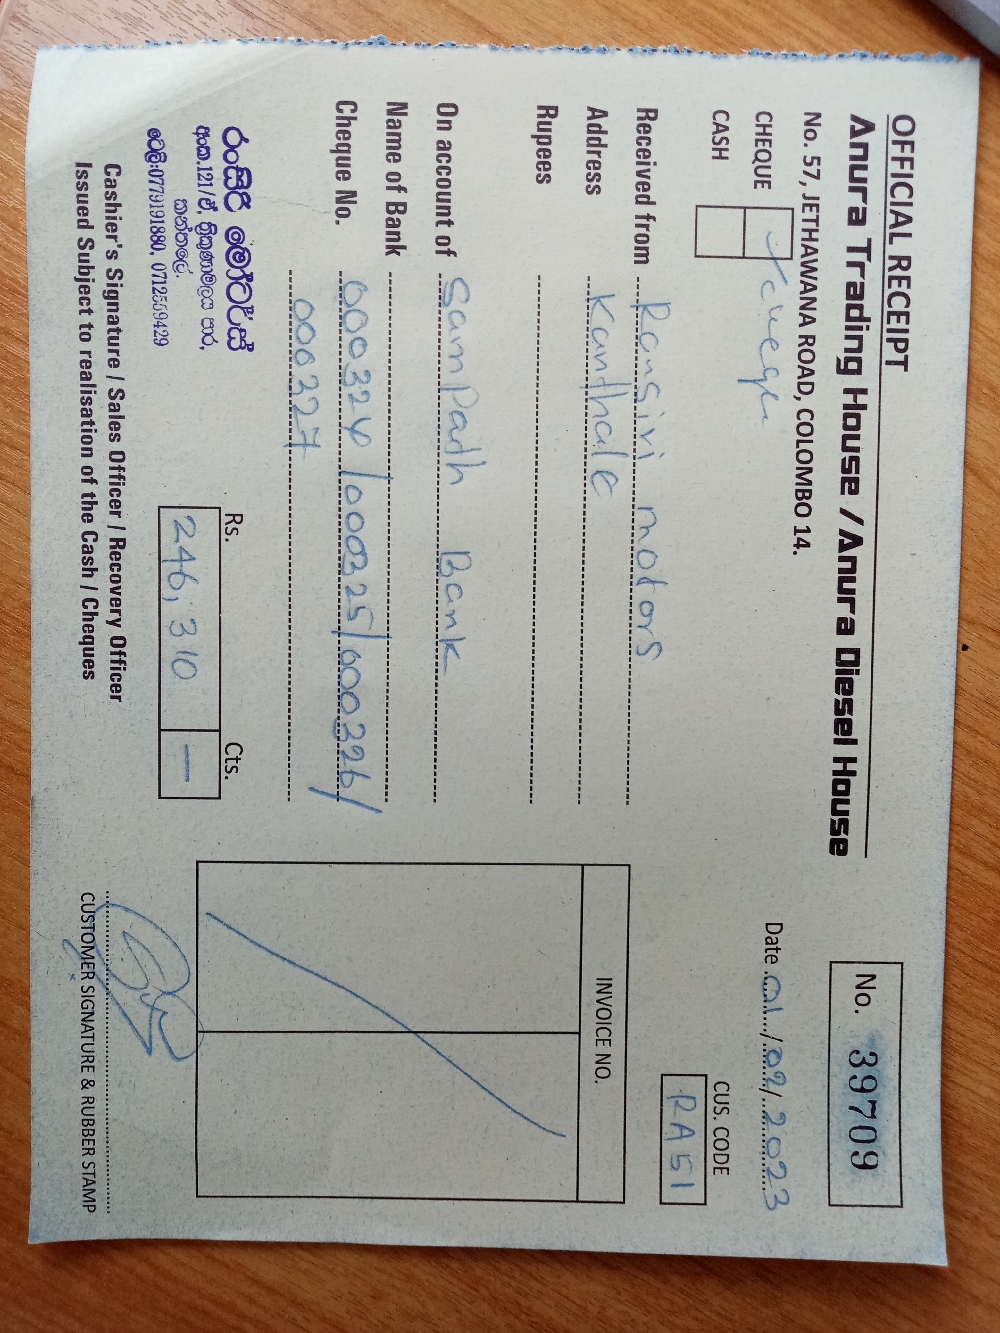 OFFICIAL RECEIPT
Anura Trading House / Anura Diesel House
No. 57, JETHAWANA ROAD, COLOMBO 14.
No. 39709
Date 01/02/2023
CHEQUE
CASH
CUS. CODE
RA51
Received from Ransiri motors
Address Kanthale
Rupees
On account of Sampath Bank
Name of Bank
Cheque No. 000324/000325/000326/
000327
INVOICE NO.
රංසිරි මෝටර්ස්
අංක.121/ඒ, ත්‍රිකුණාමලය පාර,
කන්තලේ.
ටෙලි:0779191880, 0712559429
Rs. Cts.
246,310 —
Cashier's Signature / Sales Officer / Recovery Officer
Issued Subject to realisation of the Cash / Cheques
CUSTOMER SIGNATURE & RUBBER STAMP